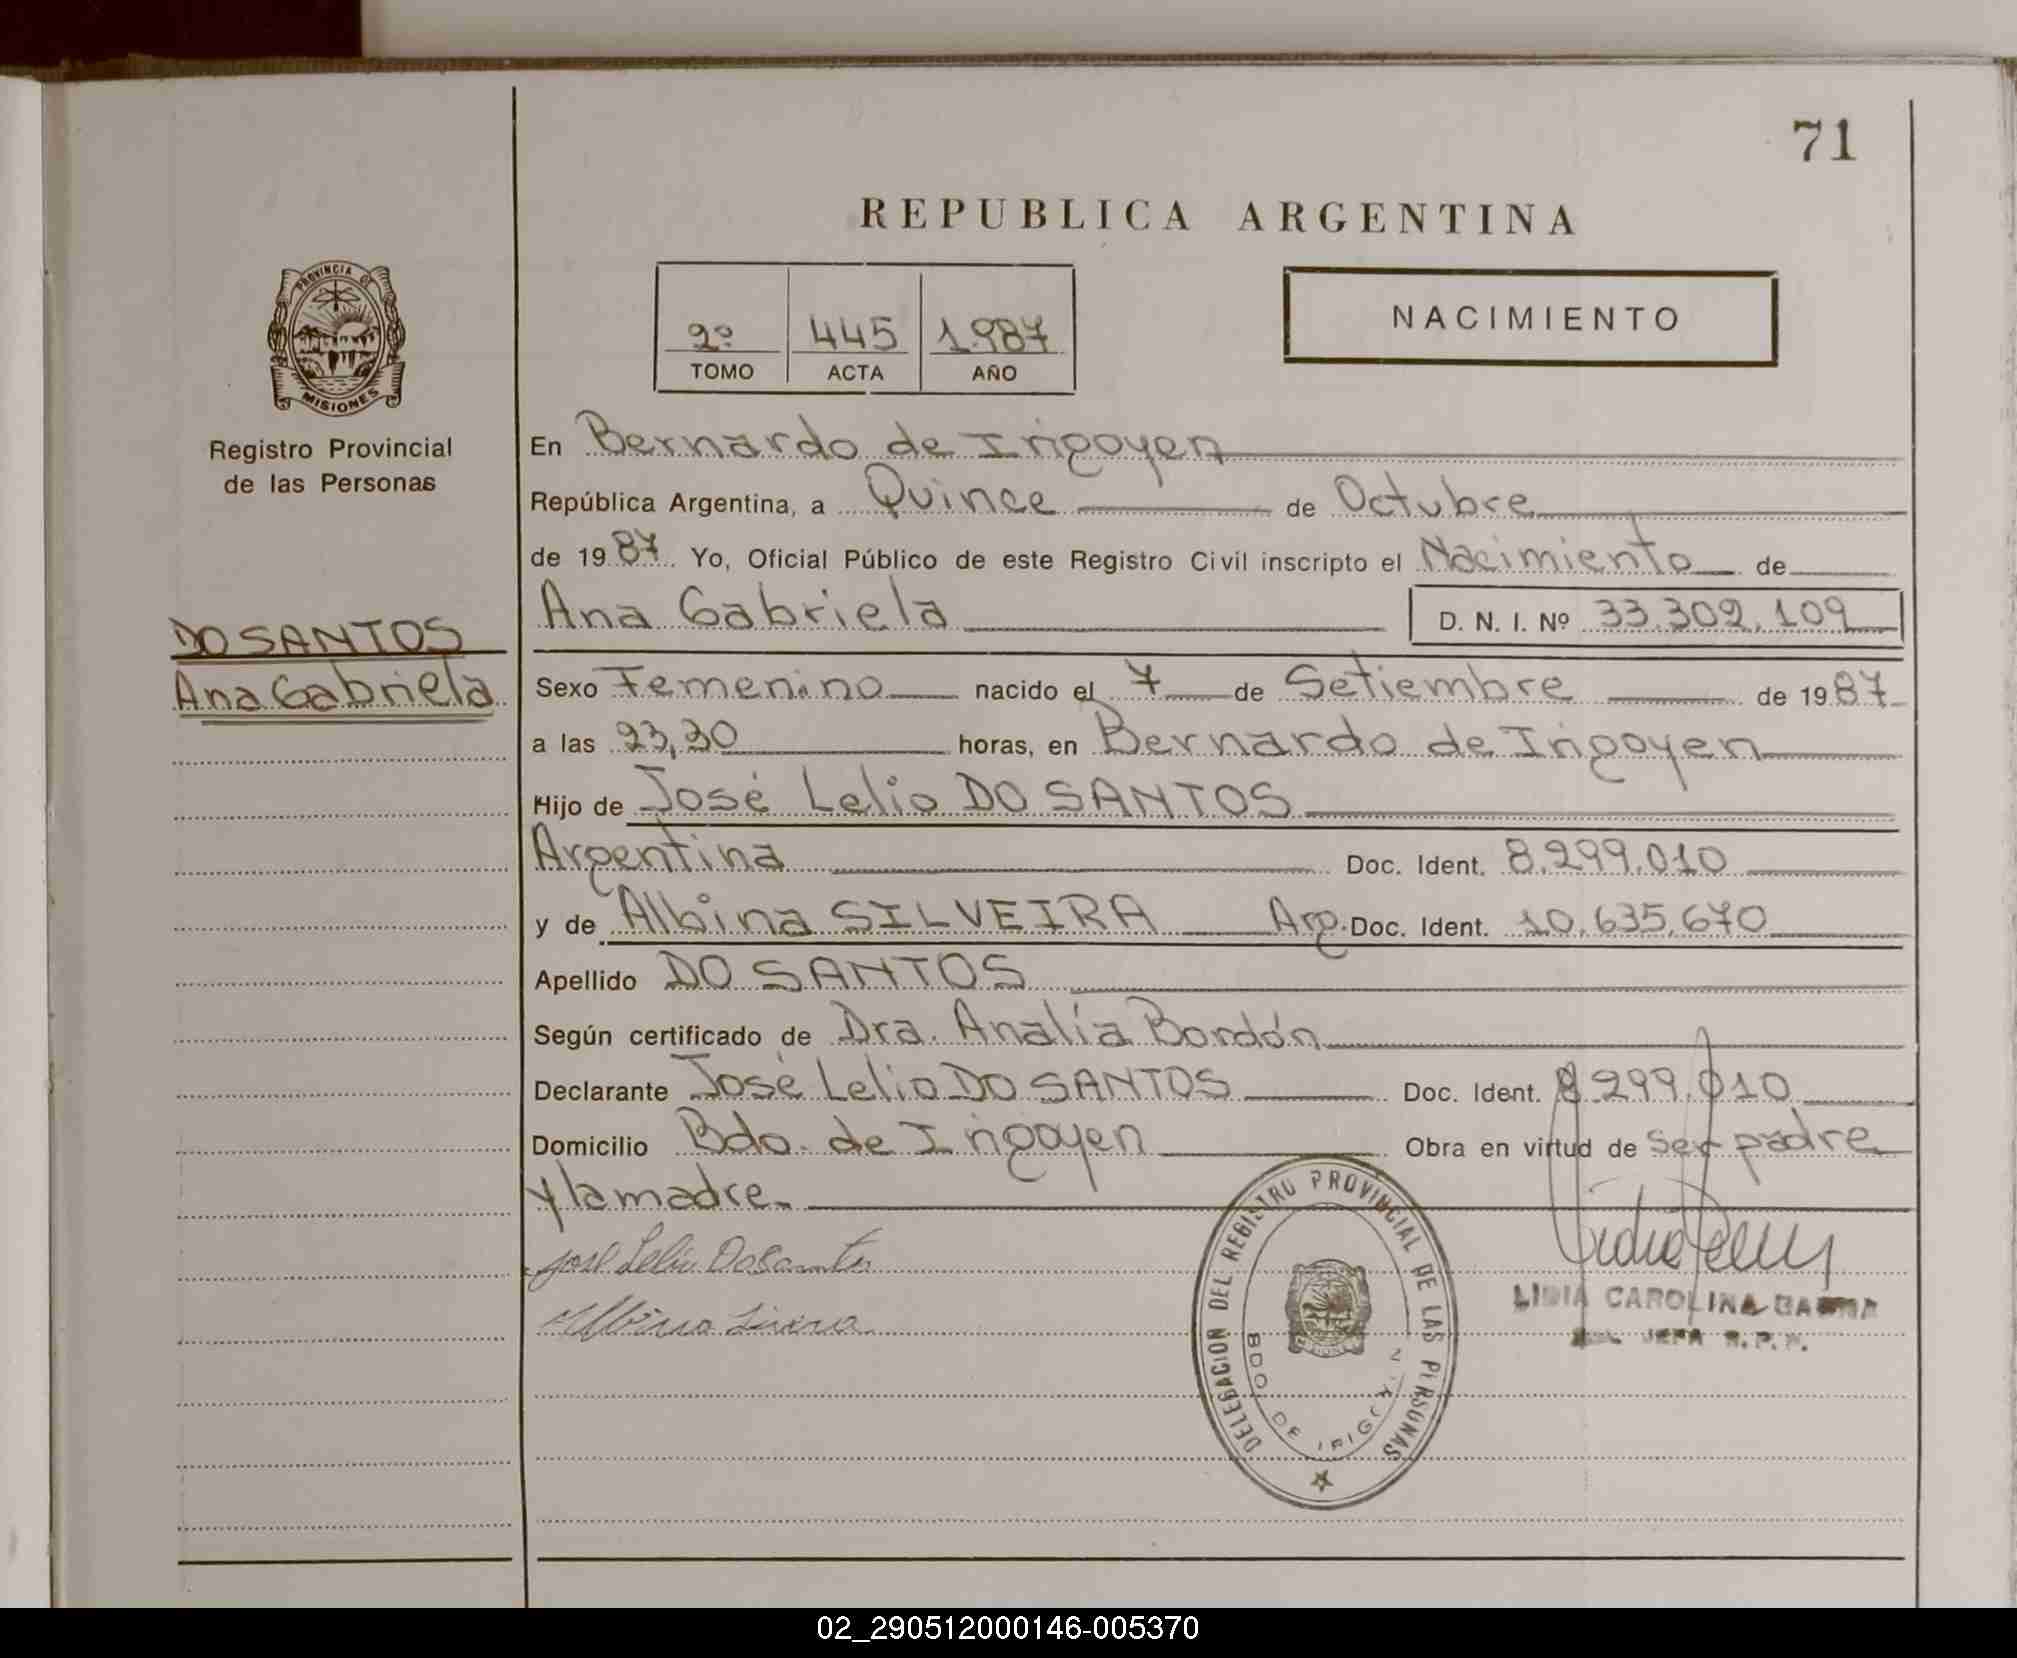 71
REPUBLICA ARGENTINA
PROVINCIA DE
MISIONES
Registro Provincial
de las Personas
2º 445 1.987
TOMO ACTA AÑO
NACIMIENTO
En Bernardo de Irigoyen
República Argentina, a Quince de Octubre
de 1987. Yo, Oficial Público de este Registro Civil inscripto el Nacimiento de
Ana Gabriela D. N. I. Nº 33.302.109
DO SANTOS
Ana Gabriela
Sexo Femenino nacido el 7 de Setiembre de 1987
a las 23,30 horas, en Bernardo de Irigoyen
Hijo de José Lelio DO SANTOS
Argentina Doc. Ident. 8.299.010
y de Albina SILVEIRA Arg. Doc. Ident. 10.635.670
Apellido DO SANTOS
Según certificado de Dra. Analía Bordón
Declarante José Lelio DO SANTOS Doc. Ident. 8.299.010
Domicilio Bdo. de Irigoyen Obra en virtud de ser padre
y la madre.
José Lelio DoSantos
LIDIA CAROLINA
JEFA R. P. P.
DELEGACION DEL REGISTRO PROVINCIAL DE LAS PERSONAS
BDO DE IRIGOYEN
02_290512000146-005370